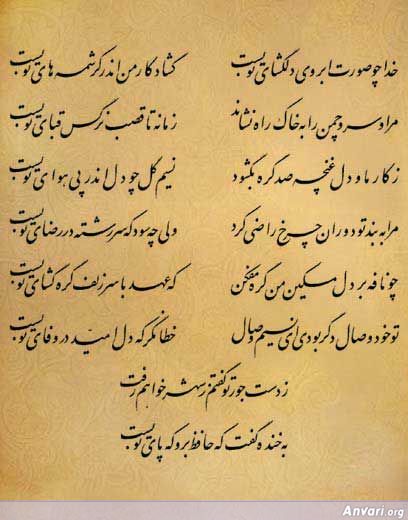 خدا چو صورت ابروی دلگشای تو بست گشاد کار من اندر کرشمه های تو بست
مرا و سرو چمن را به خاک راه نشاند زمانه تا قصب نرگس قبای تو بست
ز کار ما و دل غنچه صد گره بگشود نسیم گل چو دل اندر پی هوای تو بست
مرا به بند تو دوران چرخ راضی کرد ولی چه سود که سررشته در رضای تو بست
چو نافه بر دل مسکین من گره مفکن که عهد با سر زلف گره گشای تو بست
تو خود وصال دگر بودی ای نسیم وصال خطا نگر که دل امید در وفای تو بست
ز دست جور تو گفتم ز شهر خواهم رفت
به خنده گفت که حافظ برو که پای تو بست
Anvari.org